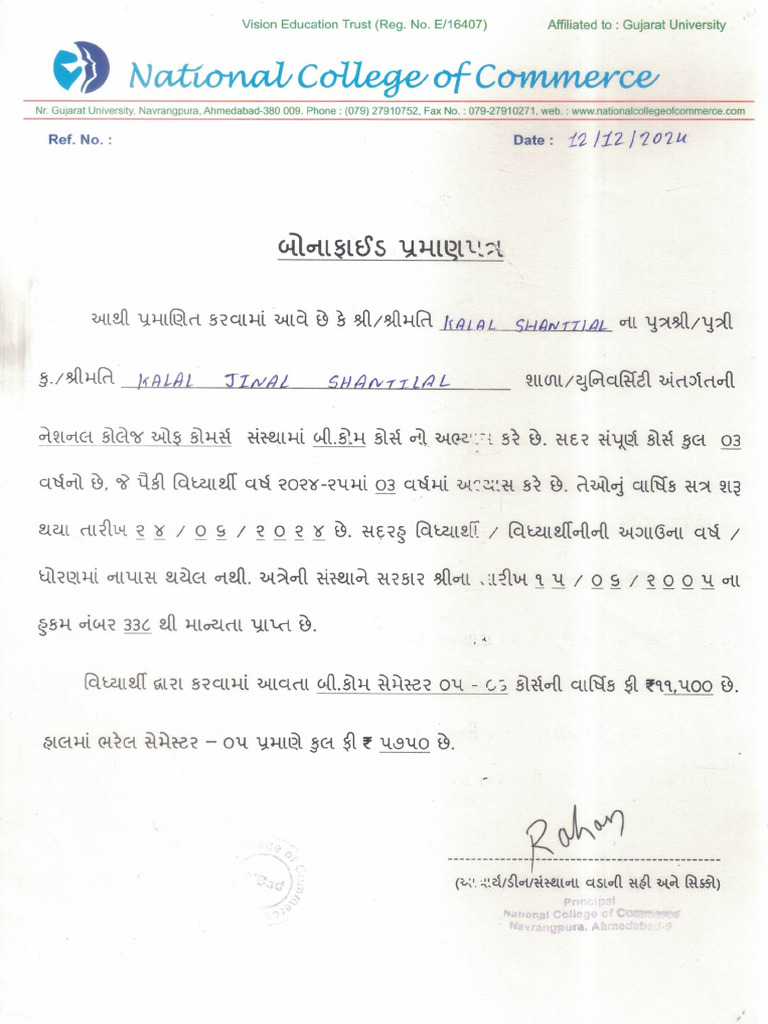 Vision Education Trust (Reg. No. E/16407) Affiliated to : Gujarat University
National College of Commerce
Nr. Gujarat University, Navrangpura, Ahmedabad-380 009. Phone : (079) 27910752, Fax No. : 079-27910271, web. : www.nationalcollegeofcommerce.com
Ref. No. : Date : 12/12/2024
બોનાફાઈડ પ્રમાણપત્ર
આથી પ્રમાણિત કરવામાં આવે છે કે શ્રી/શ્રીમતિ KALAL SHANTILAL ના પુત્રશ્રી/પુત્રી
કુ./શ્રીમતિ KALAL JINAL SHANTILAL શાળા/યુનિવર્સિટી અંતર્ગતની
નેશનલ કોલેજ ઓફ કોમર્સ સંસ્થામાં બી.કોમ કોર્સ નો અભ્યાસ કરે છે. સદર સંપૂર્ણ કોર્સ કુલ 03
વર્ષનો છે, જે પૈકી વિધ્યાર્થી વર્ષ ૨૦૨૪-૨૫માં 03 વર્ષમાં અભ્યાસ કરે છે. તેઓનું વાર્ષિક સત્ર શરૂ
થયા તારીખ ૨ ૪ / ૦ ૬ / ૨ ૦ ૨ ૪ છે. સદરહુ વિધ્યાર્થી / વિધ્યાર્થીનીની અગાઉના વર્ષ /
ધોરણમાં નાપાસ થયેલ નથી. અત્રેની સંસ્થાને સરકાર શ્રીના તારીખ ૧ ૫ / ૦ ૬ / ૨ ૦ ૦ ૫ ના
હુકમ નંબર ૩૩૮ થી માન્યતા પ્રાપ્ત છે.
વિધ્યાર્થી દ્વારા કરવામાં આવતા બી.કોમ સેમેસ્ટર ૦૫ - ૦૬ કોર્સની વાર્ષિક ફી ₹૧૧,૫૦૦ છે.
હાલમાં ભરેલ સેમેસ્ટર – ૦૫ પ્રમાણે કુલ ફી ₹ ૫૭૫૦ છે.
(આચાર્ય/ડીન/સંસ્થાના વડાની સહી અને સિક્કો)
Principal
National College of Commerce
Navrangpura, Ahmedabad-9